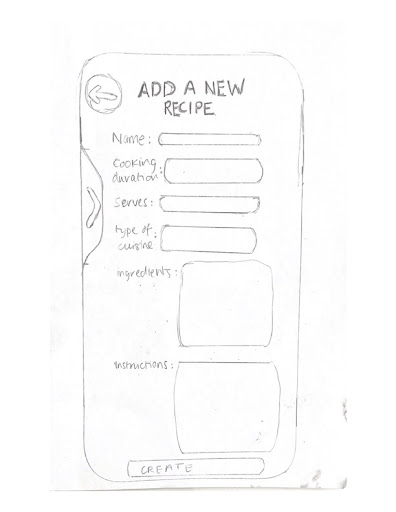 ADD A NEW
RECIPE
Name:
Cooking
duration:
Serves:
type of
cuisine:
ingredients:
instructions:
CREATE